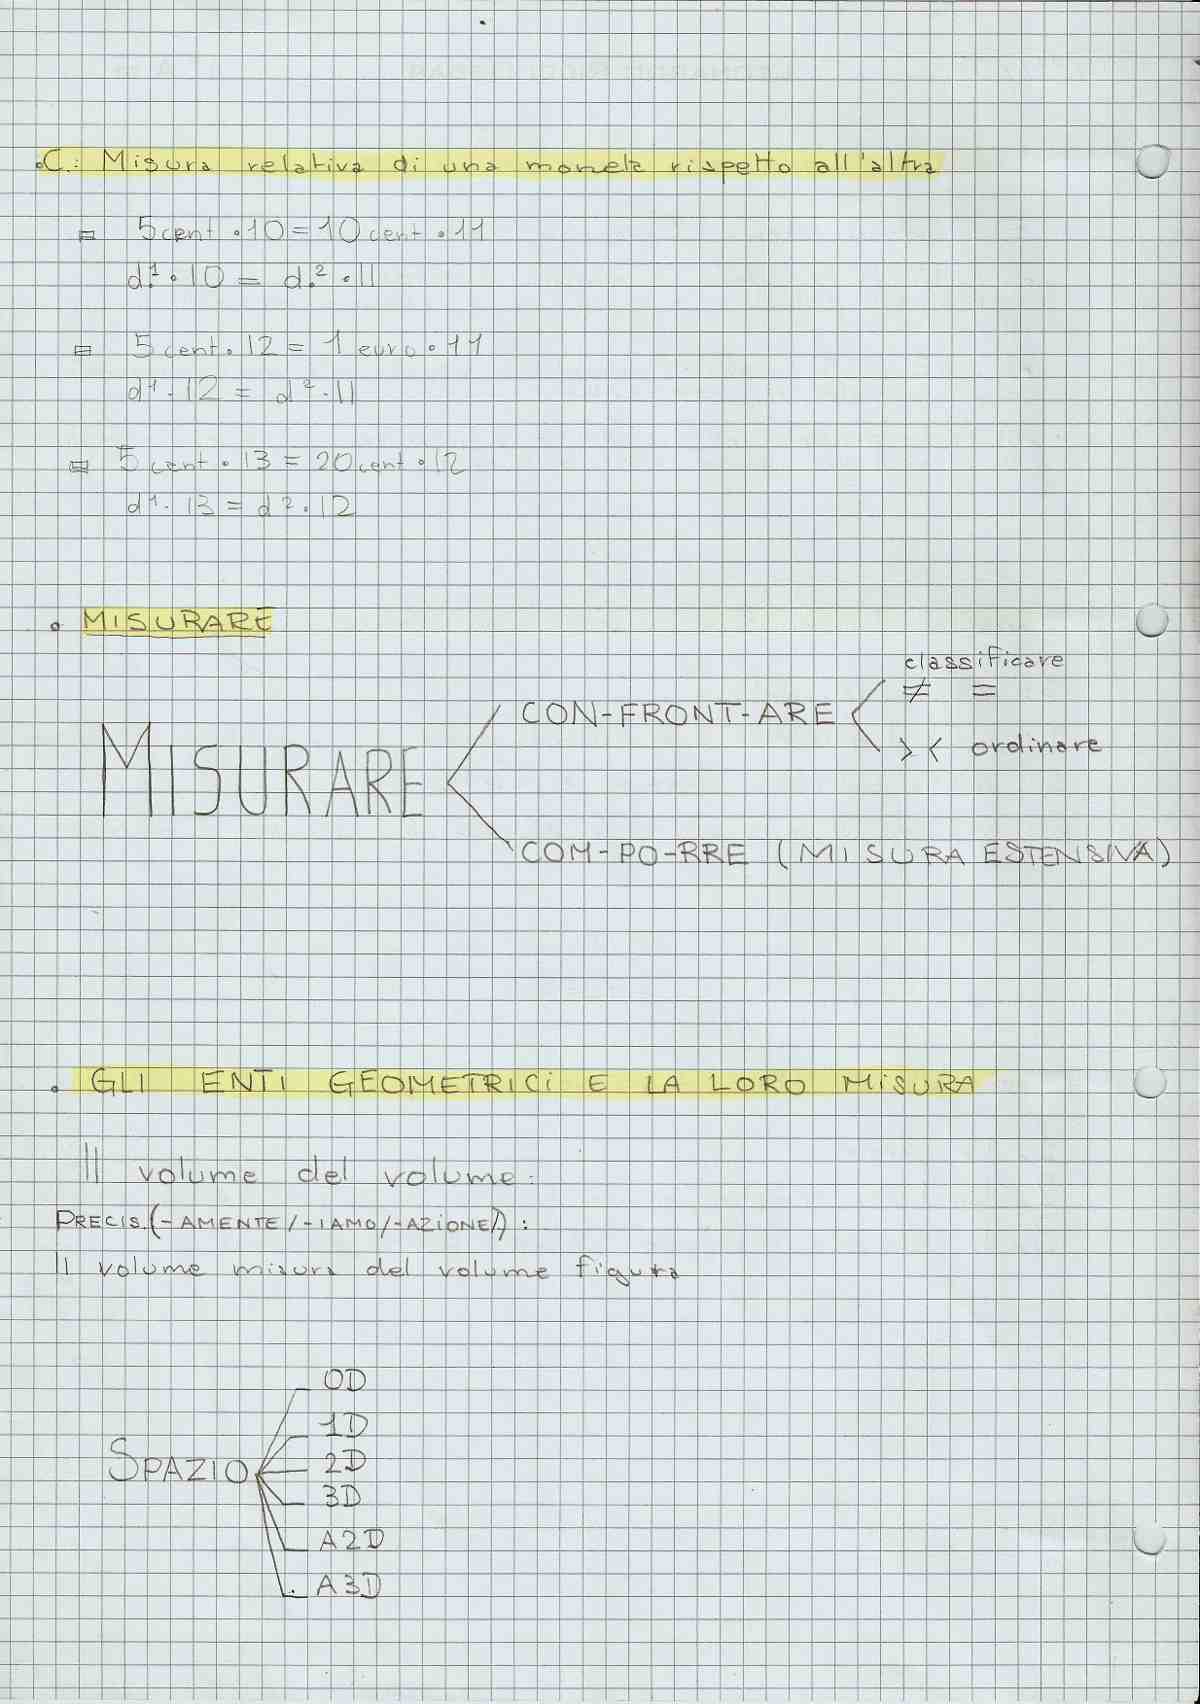 • C.: Misura relativa di una moneta rispetto all'altra
= 5 cent • 10 = 10 cent • 11
d.¹ • 10 = d.² • 11
= 5 cent • 12 = 1 euro • 11
d¹ • 12 = d² • 11
= 5 cent • 13 = 20 cent • 12
d¹ • 13 = d² • 12
• MISURARE
classificare
≠ =
CON-FRONT-ARE
> < ordinare
MISURARE
COM-PO-RRE (MISURA ESTENSIVA)
• GLI ENTI GEOMETRICI E LA LORO MISURA
Il volume del volume:
PRECIS.(-AMENTE/-IAMO/-AZIONE/):
Il volume misura del volume figura
0D
1D
SPAZIO
2D
3D
A2D
A3D